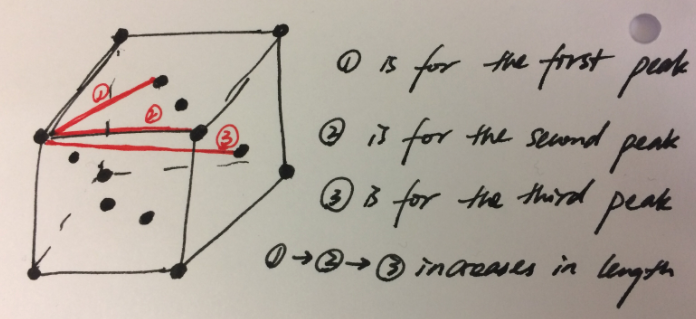 ① is for the first peak
② is for the second peak
③ is for the third peak
①→②→③ increases in length
①
②
③